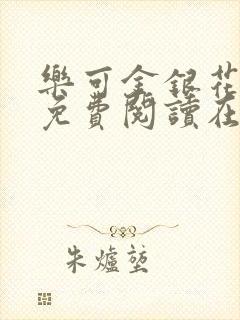 樂可金銀花
免費閱讀在
朱爐蓥